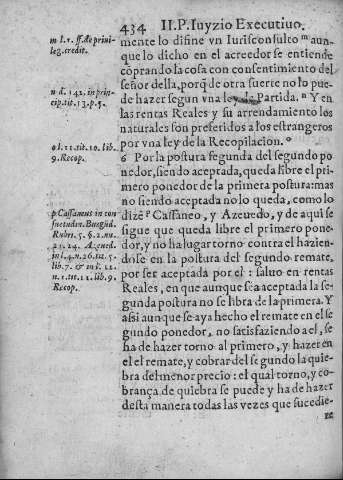 434 II.P. Iuyzio Executiuo.
m l. 1. ff. de priui-
leg. credit.
n d. 142. in prin-
cip. tit. 13. p. 5.
o l. 21. tit. 10. lib.
9. Recop.
p Cassaneus in con
suetudin. Burgũd.
Rubri. 5. §. 2. nu.
23. 24. Azeued.
in l. 4. n. 26. tit. 5.
lib. 7. & in l. 12.
n. 1. tit. 12. lib. 9.
Recop.
mente lo difine vn Iurisconsulto m aun-
que lo dicho en el acreedor se entiende
cõprando la cosa con consentimiento del
señor della, porq̃ de otra suerte no lo pue-
de hazer segun vna ley Partida. n Y en
las rentas Reales y su arrendamiento los
naturales son preferidos a los estrangeros
por vna ley de la Recopilacion. o
6 Por la postura segunda del segundo po
nedor, siendo aceptada, queda libre el pri-
mero ponedor de la primera postura: mas
no siendo aceptada no lo queda, como lo
dizẽ p Cassaneo, y Azeuedo, y de aqui se
sigue que queda libre el primero pone-
dor, y no ha lugar torno contra el hazien-
dose en la postura del segundo remate,
por ser aceptada por el: saluo en rentas
Reales, en que aunque sea aceptada la se-
gunda postura no se libra de la primera. Y
assi aunque se aya hecho el remate en el se
gundo ponedor, no satisfaziendo a el, se
ha de hazer torno al primero, y hazer en
el el remate, y cobrar del segundo la quie-
bra del menor precio: el qual torno, y co-
brança de quiebra se puede y ha de hazer
desta manera todas las vezes que sucedie-
re